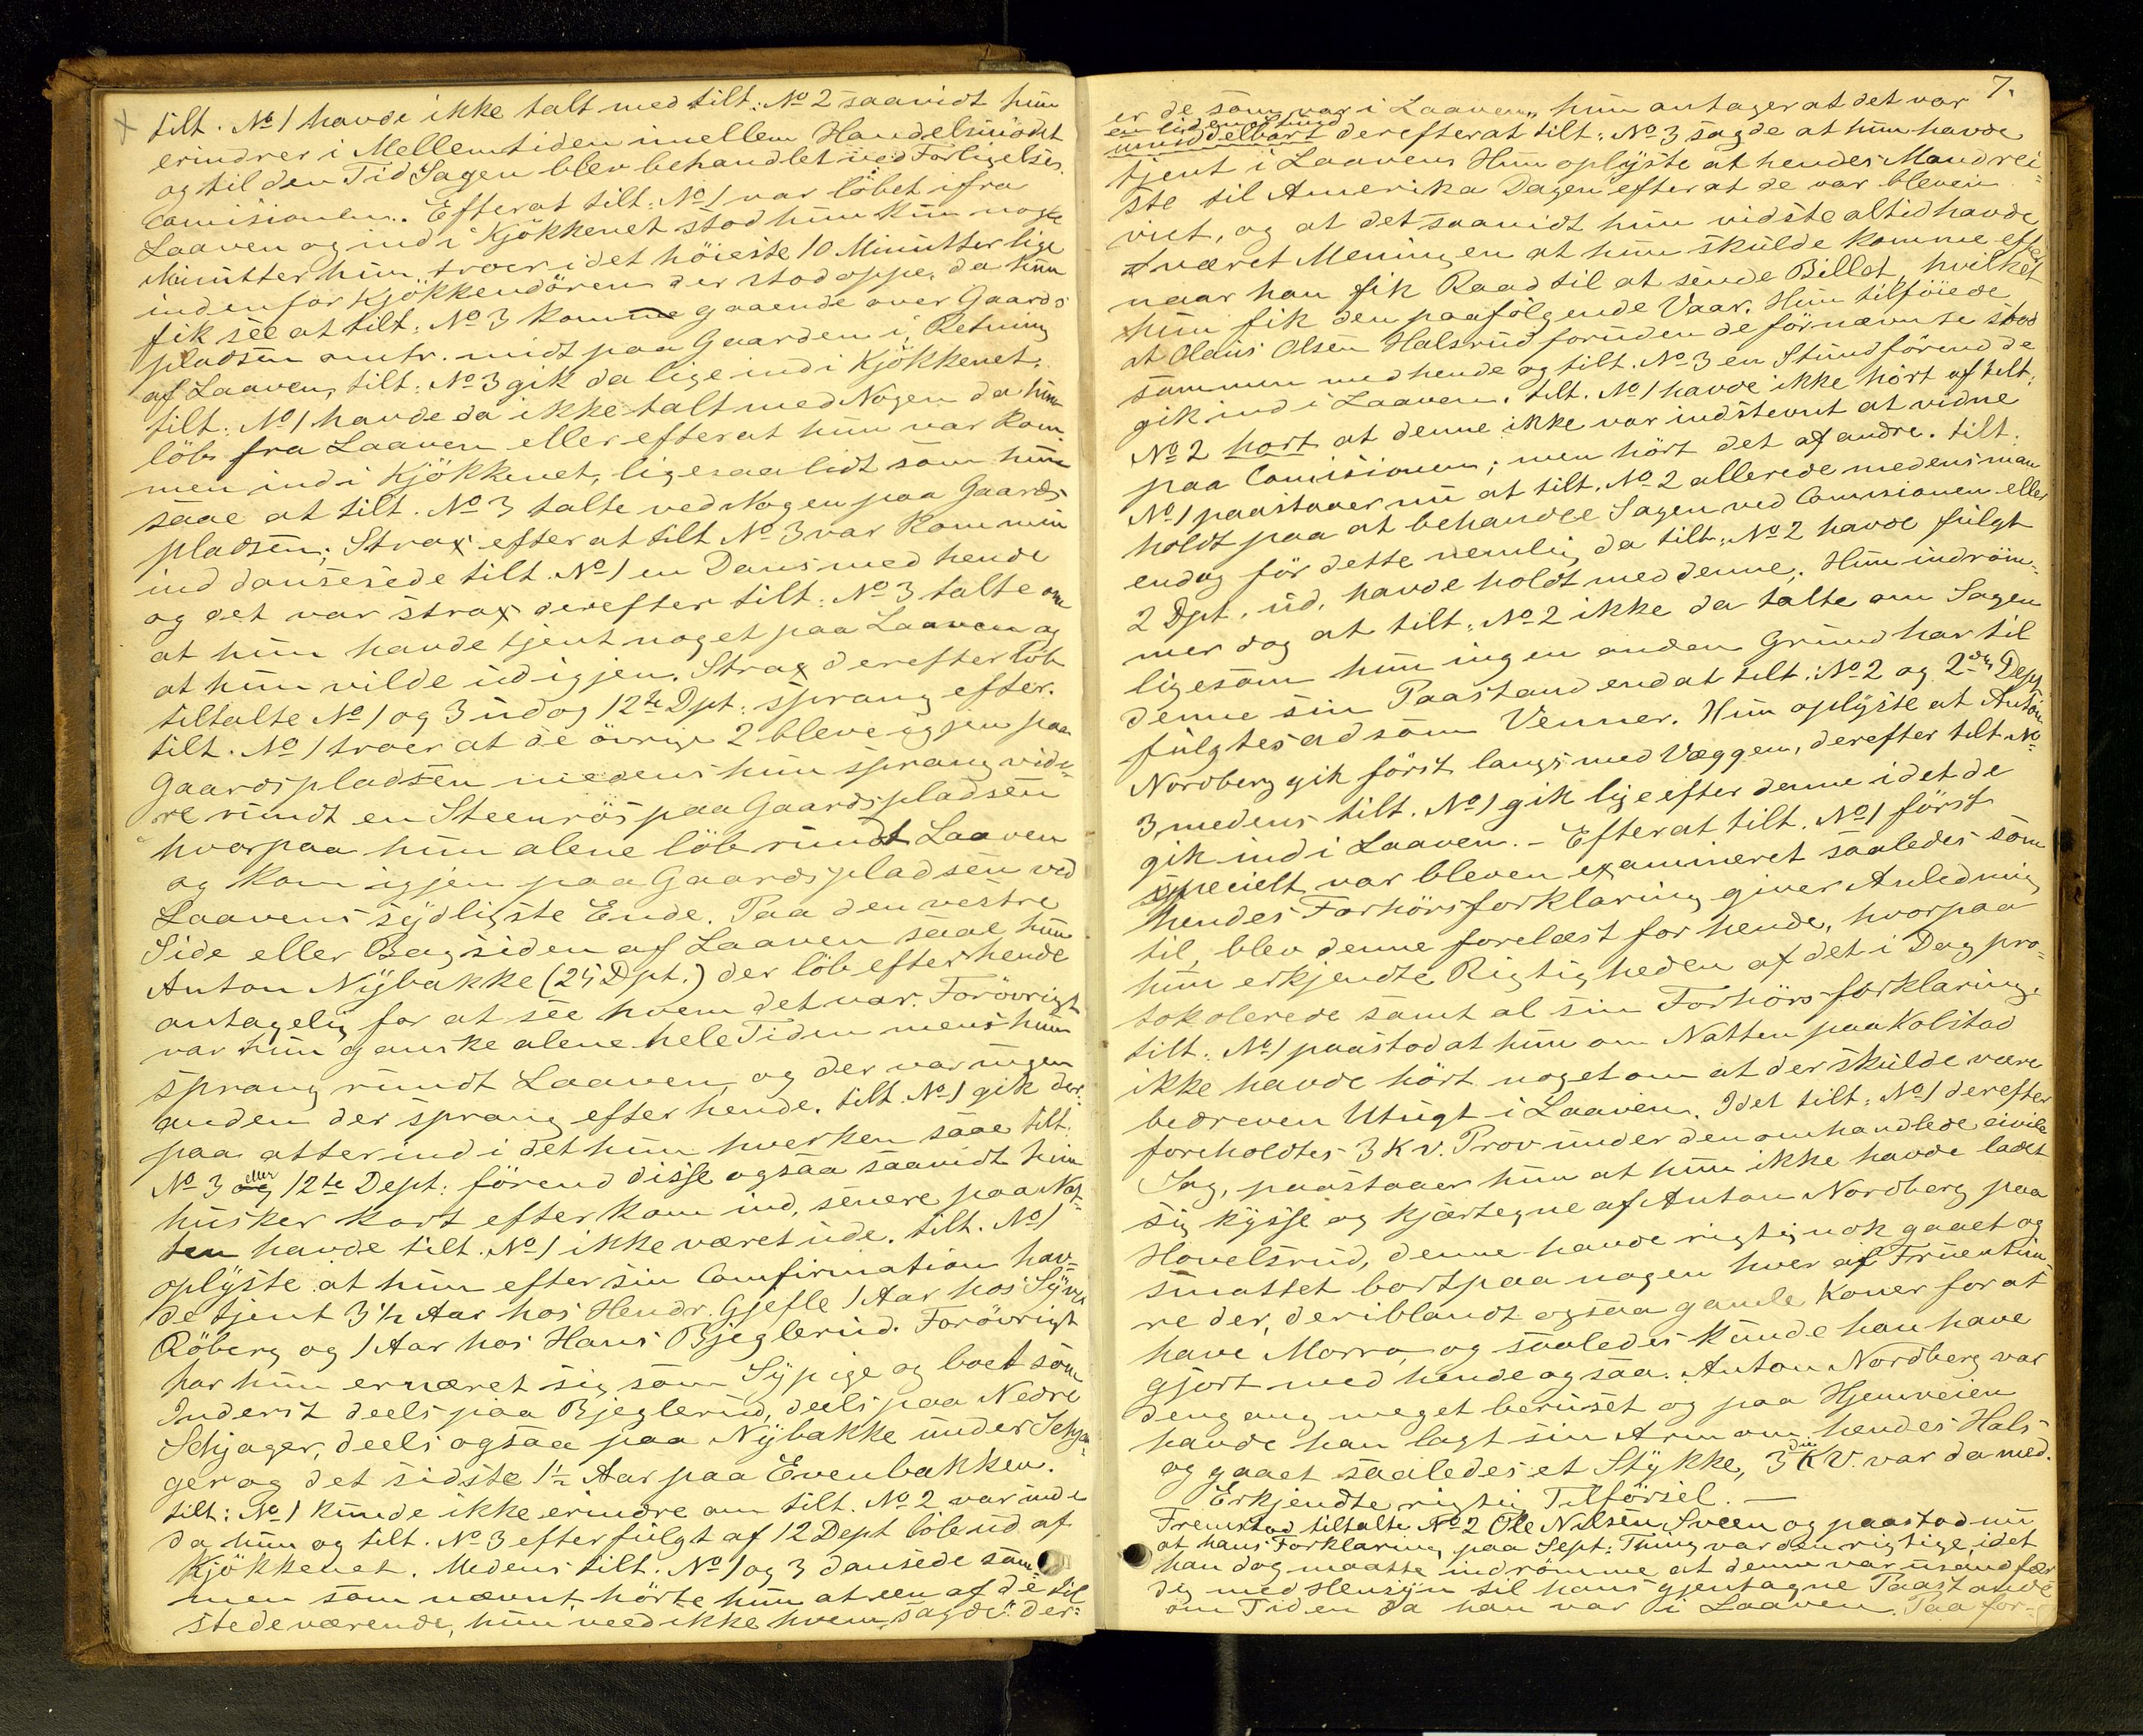 tilt. No 1 havde ikke talt med tilt: No 2 saavidt hun
erindrer i Mellemtiden imellem Handelsmödet
og til den Tid Sagen blev behandlet ved Forligelses
Comisionen. Efterat tilt: No 1 var löbet ifra
Laaven og ind i Kjökkenet stod hun kun nogle
Minutter hun troer i det höieste 10 Minutter lige
indenfor Kjökkendören der stod oppe, da hun
fik see at tilt: No 3 kom gaaende over Gaards
pladsen omtr. midt paa Gaarden i Retning
af Laaven, tilt: No 3 gik da lige ind i Kjökkenet.
tilt: No 1 havde da ikke talt med Nogen da hun
löb fra Laaven eller efterat hun var kom-
men ind i Kjökkenet, ligesaalidt som hun
saae at tilt. No 3 talte ved Nogen paa Gaards
pladsen; Strax efterat tilt No 3 var kommen
ind dansesede tilt. No 1 en Dans med hende
og det var strax derefter tilt: No 3 talte om
at hun havde tjent noget paa Laaven og
at hun vilde ud igjen. Strax derefter löb
tiltalte No 1 og 3 ud og 12te Dpt: sprang efter.
tilt. No 1 troer at de övrige 2 bleve igjen paa
Gaardspladsen medens hun sprang vide-
re rundt en Steenrös paa Gaardspladsen
hvorpaa hun alene löb rundt Laaven
og kom igjen paa Gaardspladsen ved
Laavens sydligste Ende. Paa den vestre
Side eller Bagsiden af Laaven saae hun
Anton Nybakke (25 Dpt.) der löb efter hende
antagelig for at see hvem det var. Forövrigt
var hun ganske alene hele Tiden mens hun
sprang rundt Laaven, og der var ingen
anden der sprang efter hende. tilt. No 1 gik der-
paa atter ind i det hun hverken saae tilt.
No 3 eller 12te Dept: förend disse ogsaa saavidt hun
husker kort efter kom ind, senere paa Nat-
ten havde tilt. No 1 ikke været ude. tilt. No 1
oplyste at hun efter sin Comfirmation hav-
de tjent 3 1/2 Aar hos Hendr. Gjefle 1 Aar hos Syver
Röberg og 1 Aar hos Hans Bjeglerud. Forövrigt
har hun ernæret sig som Sypige og boet som
Inderst deels paa Bjeglerud, deels paa Nedre
Schjager, deels ogsaa paa Nybakke under Schja-
ger og det sidste 1 1/2 Aar paa Evenbakken.
tilt: No 1 kunde ikke erindre om tilt. No 2 var inde
da hun og tilt. No 3 efterfulgt af 12 Dept löb ud af
Kjökkenet. Medens tilt. No 1 og 3 dansede sam
men som nævnt hörte hun at een af de til
stedeværende, hun veed ikke hvem, sagde "der-
7.
er de som var i Laaven", hun antager at det var
en liden Stund
umiddelbart derefter at tilt: No 3 sagde at hun havde
tjent i Laaven. Hun oplyste at hendes Mand rei-
ste til Amerika Dagen efterat de var bleven
viet, og at det saavidt hun vidste altid havde
været Meningen at hun skulde komme efter
naar han fik Raad til at sende Billet, hvilket
hun fik den paafölgende Vaar. Hun tilföiede
at Olaus Olsen Halsrud foruden de förnævnte stod
sammen med hende og tilt. No 3 en Stund förend de
gik ind i Laaven. tilt. No 1 havde ikke hört af tilt.
No 2 hört at denne ikke var indstevnt at vidne
paa Comisionen; men hört det af andre. tilt.
No 1 paastaaer nu at tilt. No 2 allerede medens man
holdt paa at behandle Sagen ved Comisionen eller
endog för dette nemlig da tilt: No 2 havde fulgt
2 Dpt. ud, havde holdt med denne. Hun indröm-
mer dog at tilt: No 2 ikke da talte om Sagen
ligesom hun ingen anden Grund har til
denne sin Paastand end at tilt: No 2 og 2den Dept
fulgtes ad som Venner. Hun oplyste at Anton
Nordberg gik först langs med Væggen, derefter tilt. No
3, medens tilt. No 1 gik lige efter denne i det de
gik ind i Laaven. - Efterat tilt. No 1 först
specielt var bleven examineret saaledes som
hendes Forhörsforklaring giver Anledning
til, blev denne forelæst for hende, hvorpaa
hun erkjendte Rigtigheden af det i Dag pro-
tokolerede samt al sin Forhörsforklaring.
tilt: No 1 paastod at hun om Natten paa Kolstad
ikke havde hört noget om at der skulde være
bedreven Utugt i Laaven. Idet tilt: No 1 derefter
foreholdtes 3 K.V. Prov under den omhandlede civile
Sag, paastaaer hun at hun ikke havde ladet
sig kysse og kjærtegne af Anton Nordberg paa
Hovelsrud, denne havde rigtignok gaaet og
smattet bortpaa nogen hver af Fruentim
re der, deriblandt ogsaa gamle Koner for at
have Morro, og saaledes kunde han have
gjort med hende ogsaa. Anton Nordberg var
dengang meget beruset og paa Hjemveien
havde han lagt sin Arm om hendes Hals
og gaaet saaledes et Stykke, 3die K.V. var da med.
Erkjendte rigtig Tilförsel. —
Fremstod tiltalte No 2 Ole Nilsen Sveen og paastod nu
at hans Forklaring paa Sept: Thing var den rigtige, idet
han dog maatte indrömme at denne var usandfær
dig med Hensyn til hans gjentagne Paastande
om Tiden da han var i Laaven. Paa for-